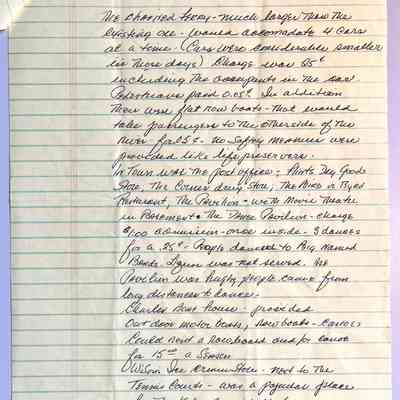 The chained ferry - much larger than the
existing one - would accomodate 4 cars
at a time - (Cars were considerable smaller
in those days) Charge was 25¢
including the occupants in the car
Pedestrians paid 0.05¢. In addition
there were flat row boats - that would
take passengers to the otherside of the
river for 15¢ - no safety measures were
provided like life preservers.
In Town was the post office; Dry Goods
Store, The Corner drug Store, The
Restaurant, The Pavilion - with Movie Theater
in Basement & The Dance Pavilion - charge
$1.00 admission - once inside - 3 dances
for a .25¢ - People danced to Big Named
Bands. Liquor was not served. The
Pavilion was huge people came from
long distances to dance -
Charles Boat house - provided
Out door motor boats, row boats - canoes
Could rent a rowboat and/or canoe
for 15.00 a Season
Wilson Ice Cream Store - next to the
Tennis Courts - was a popular place